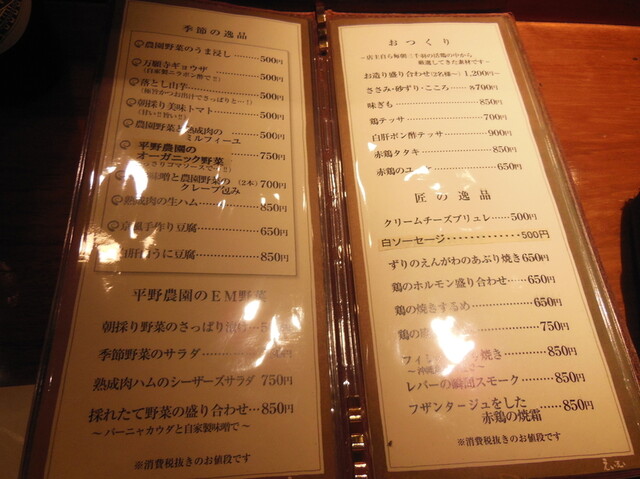 季節の逸品
農園野菜のうま浸し 500円
万願寺ギョウザ 500円
(自家製ニラポン酢で!!)
落とし山芋 500円
(極旨かつお出汁でさっぱりと〜!)
朝採り美味トマト 500円
(甘い!!旨い!!)
農園野菜と熟成肉の
ミルフィーユ 500円
平野農園の
オーガニック野菜 750円
さっぱりゴマソースで
味噌と農園野菜の (2本)
クレープ包み 700円
熟成肉の生ハム 850円
京風手作り豆腐 650円
白肝 うに豆腐 850円
平野農園のEM野菜
朝採り野菜のさっぱり漬け
季節野菜のサラダ 円
熟成肉ハムのシーザーズサラダ 750円
採れたて野菜の盛り合わせ…850円
〜バーニャカウダと自家製味噌で〜
※消費税抜きのお値段です
おつくり
〜店主自ら毎朝三千羽の活鶏の中から
厳選してきた素材です〜
お造り盛り合わせ(2名様〜) 1,200円〜
ささみ・砂ずり・こころ…各700円
味ぎも 850円
鶏テッサ 700円
白肝ポン酢テッサ 900円
赤鶏タタキ 850円
赤鶏のユ 650円
匠の逸品
クリームチーズブリュレ 500円
白ソーセージ 500円
ずりのえんがわのあぶり焼き 650円
鶏のホルモン盛り合わせ…650円
鶏の焼きするめ 650円
鶏の 750円
フィレ 焼き 850円
レバーの瞬間スモーク 850円
フザンタージュをした
赤鶏の焼霜 850円
※消費税抜きのお値段です